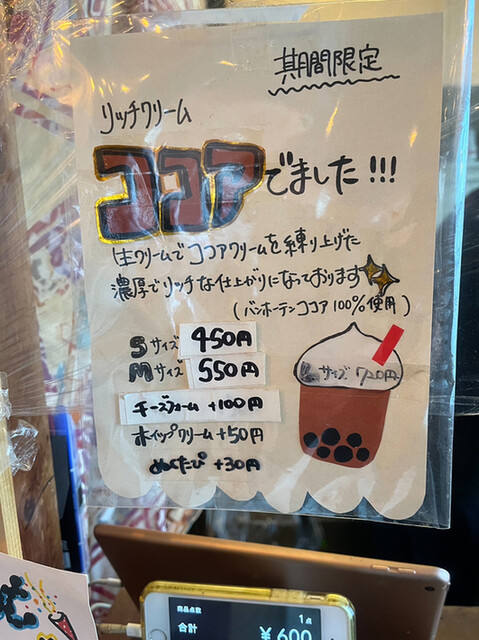 期間限定
リッチクリーム
ココアでました!!!
生クリームでココアクリームを練り上げた
濃厚でリッチな仕上がりになっております
(バンホーテンココア100%使用)
Sサイズ 450円
Mサイズ 550円
Lサイズ 720円
チーズフォーム +100円
ホイップクリーム +50円
ぬくたぴ +30円
商品点数 1点
合計 ¥600